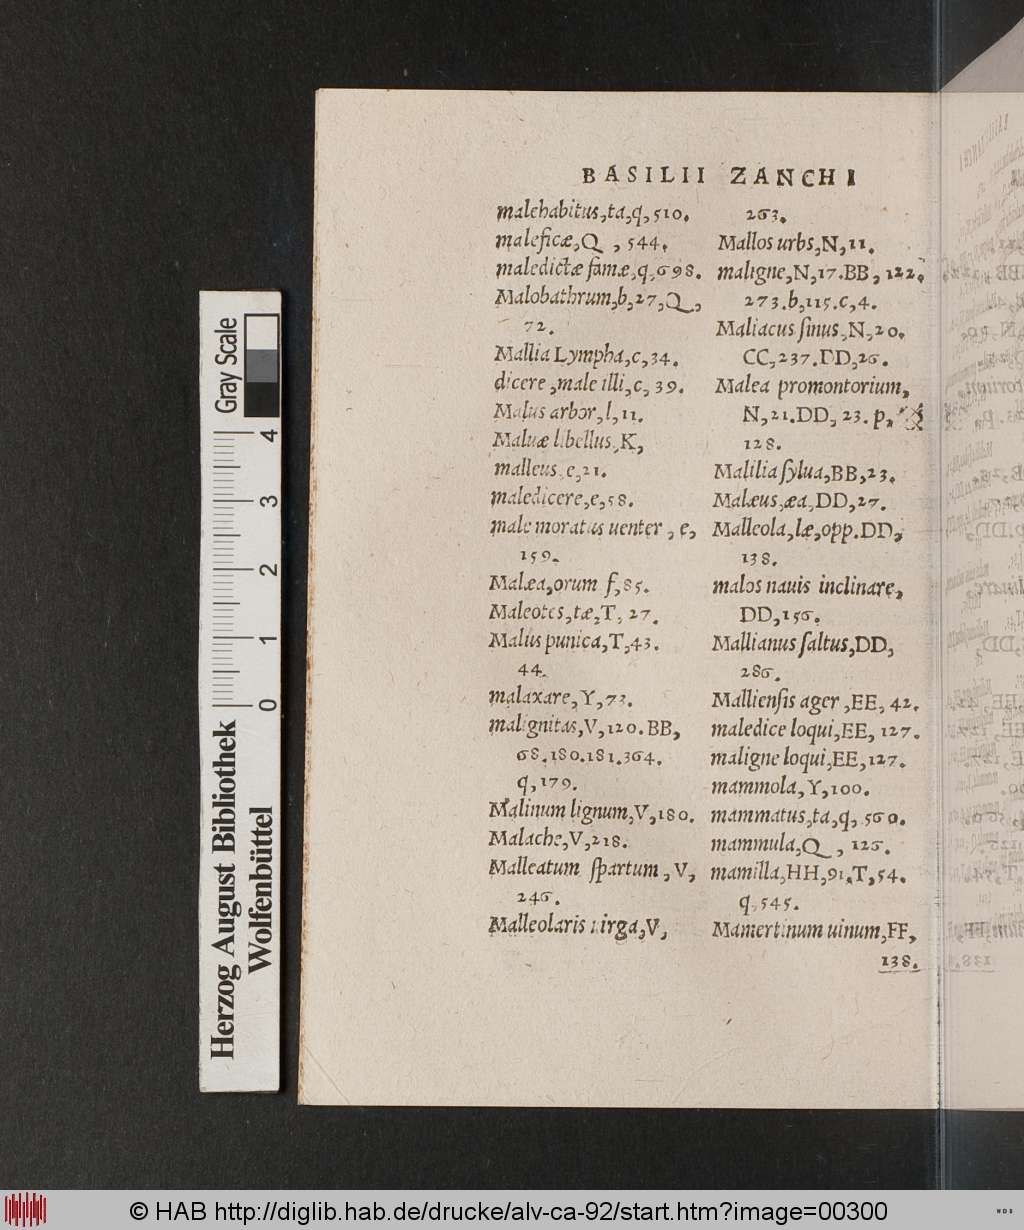 BASILII ZANCHI
malehabitus,ta,q,510.
maleficæ,Q,544.
maledictæ famæ,q,698.
Malobathrum,b,27,Q,
72.
Mallia Lympha,c,34.
dicere,male illi,c,39.
Malus arbor,l,11.
Maluæ libellus,K,
malleus,e,21.
maledicere,e,58.
male moratus uenter,e,
159.
Malæa,orum f,85.
Maleotes,tæ,T,27.
Malus punica,T,43.
44.
malaxare,Y,73.
malignitas,V,120.BB,
68.180.181.364.
q,179.
Malinum lignum,V,180.
Malache,V,218.
Malleatum spartum,V,
246.
Malleolaris uirga,V,
263.
Mallos urbs,N,11.
maligne,N,17.BB,122.
273.b,115.c,4.
Maliacus sinus,N,20.
CC,237.DD,26.
Malea promontorium,
N,21.DD,23.p,
128.
Malilia sylua,BB,23.
Malæus,æa,DD,27.
Malleola,læ,opp.DD,
138.
malos nauis inclinare,
DD,156.
Mallianus saltus,DD,
286.
Malliensis ager,EE,42.
maledice loqui,EE,127.
maligne loqui,EE,127.
mammola,Y,100.
mammatus,ta,q,560.
mammula,Q,126.
mamilla,HH,91.T,54.
q,545.
Mamertinum uinum,FF,
138.
Gray Scale
4
3
2
1
0
Herzog August Bibliothek
Wolfenbüttel
© HAB http://diglib.hab.de/drucke/alv-ca-92/start.htm?image=00300